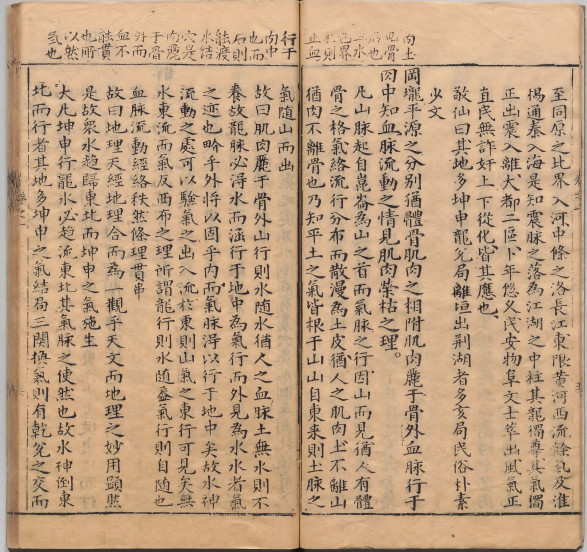 至同原之比界入河中條之洛長江東限黃河西流餘氣皮淮
楊通泰入海是知震脉之落為江湖之中柱其龍獨尊其氣獨
正出震入離大都二區卜年悠久民安物阜文士萃出風氣正
直民無詐奸上下從化皆其應也
敬仙曰其地多坤申龍兌局離垣出荆湖者多亥局民俗朴素
少文
岡壠平源之分别猶體骨肌肉之相附肌肉麗于骨外血脉行于
肉中知血脉流動之情見肌肉榮枯之理。
凡山脉起自崑崙為山之首而氣脉之行因山而見猶人有體
骨之格氣絡流行分布而散漫為土皮猶人之肌肉土不離山
猶肉不離骨也乃知平土之氣皆根于山山自東来則土脉之
肉土
止血
行于
肉中
也而
石則
能渡
水結
穴是
肉麗
骨而
血不
能貫
也所
以然
氣也
氣随山而出
故曰肌肉麗于骨外山行則水随水猶人之血脉土無水則不
養故龍脉必得水而涵行于地中為氣行而外見為水水者氣
之迹也畛乎外将以固乎内而氣脉得以行于地中矣故水神
流動之處可以驗氣之出入流於東則山氣之東行可見矣無
水東流而氣反西布之理所謂龍行則水随盖氣行則自随也
血脉流動經絡秩然條理貫串
故曰地理天經地理合而為一觀乎天文而地理之妙用顕然
是故衆水趨歸東北而坤申之氣施生
大凡坤申行龍水必趨流東北其氣脉之使然也故水神倒東
北而行者其地多坤申之氣結局三閞換氣則有乾兌之交而